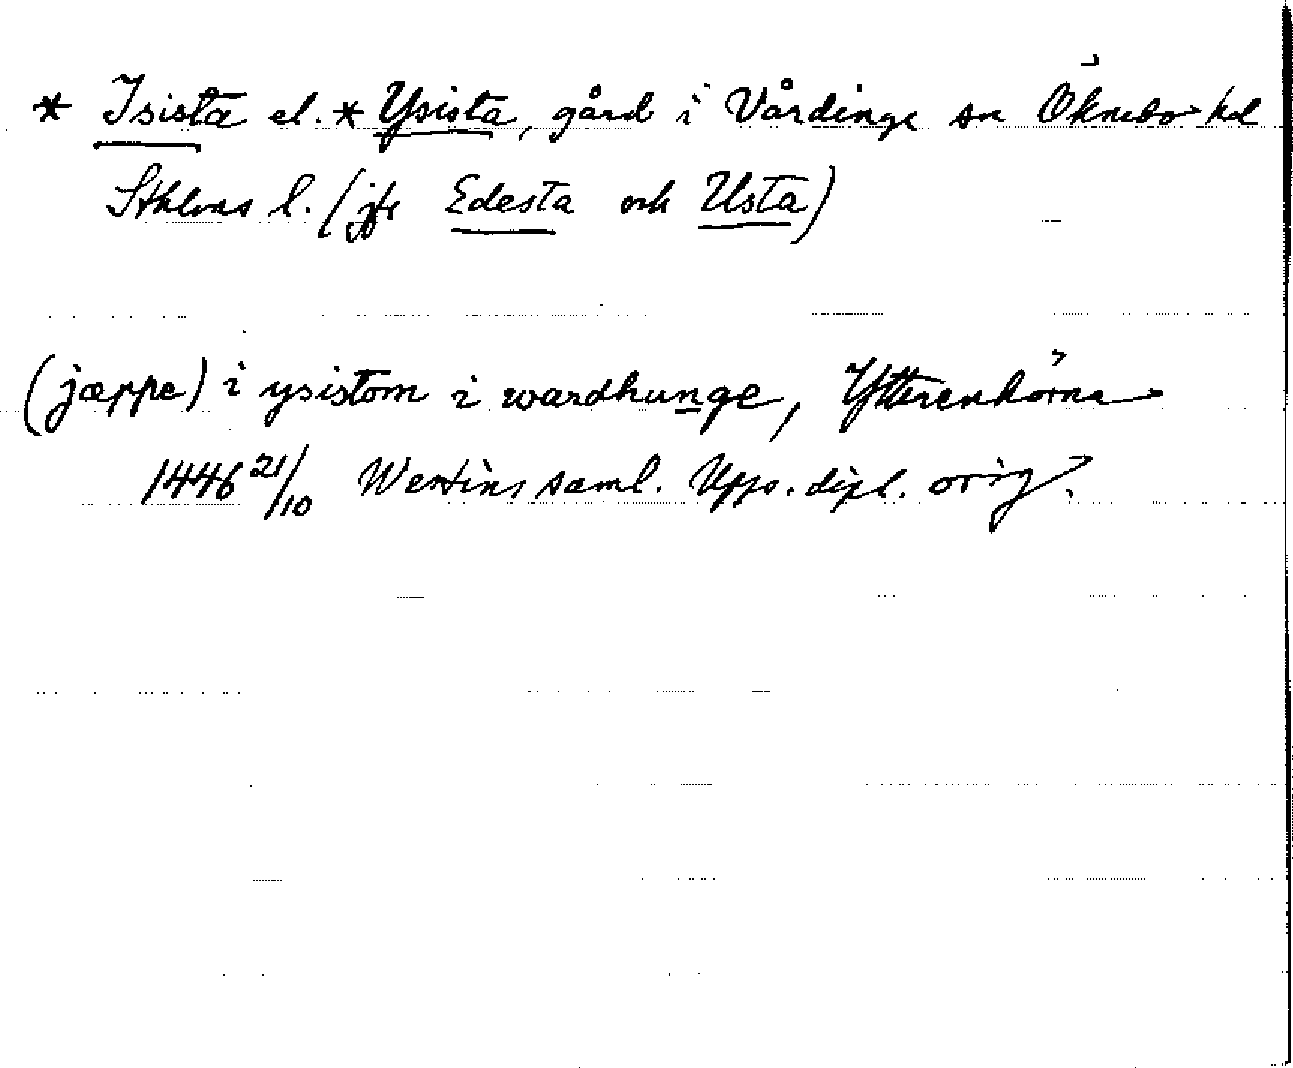 * Isista el. * Ysista, gård i Vårdinge sn Öknebo hd
Sthlms l. (jfr Edesta och Usta)
(jæppe) i ysistom i wardhunge, Ytterenhörna
1446 21/10 Westins saml. Upps. dipl. orig.